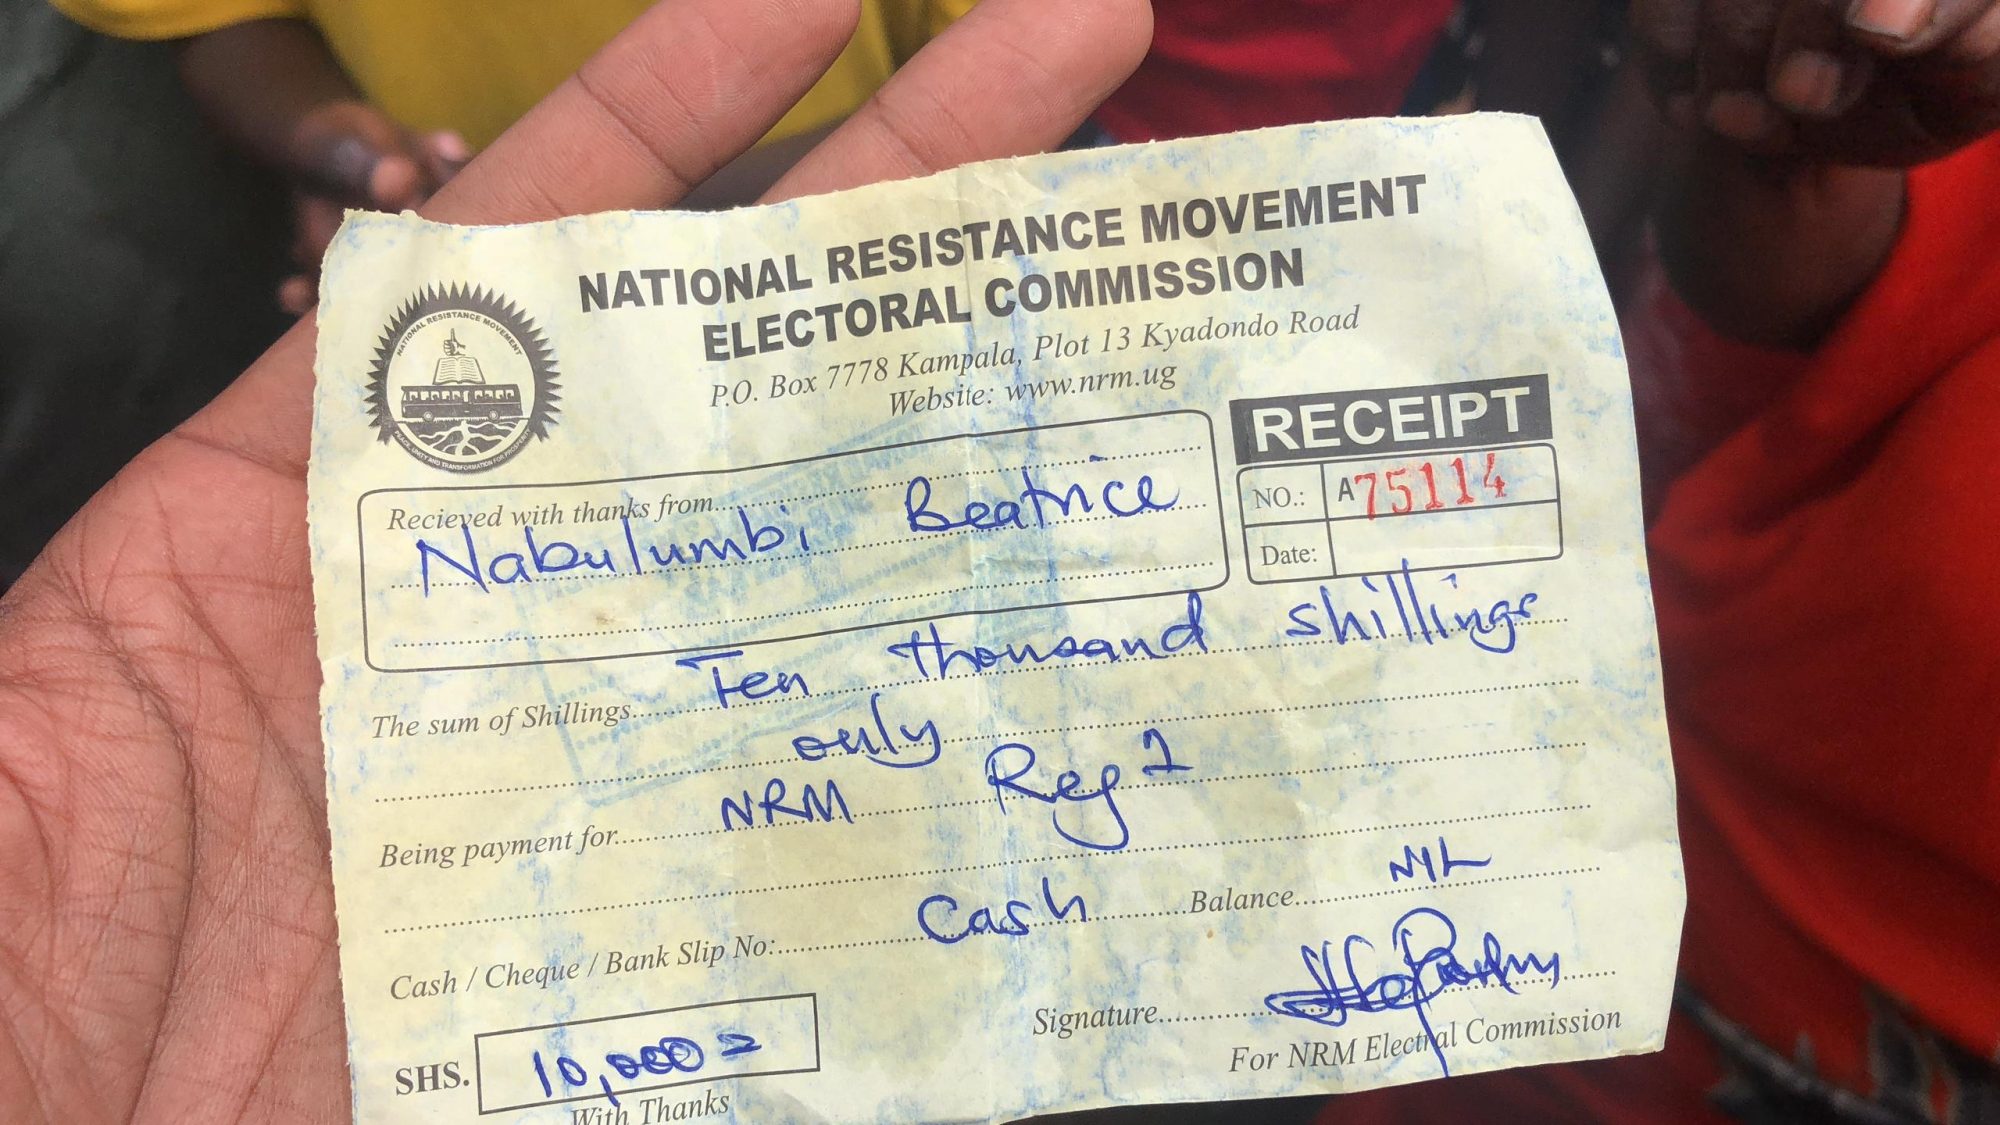 NATIONAL RESISTANCE MOVEMENT
ELECTORAL COMMISSION
P.O. Box 7778 Kampala, Plot 13 Kyadondo Road
Website: www.nrm.ug
NATIONAL RESISTANCE MOVEMENT
PEACE, UNITY AND TRANSFORMATION FOR PROSPERITY
RECEIPT
NO.: A75114
Date:
Recieved with thanks from
Nabulumbi Beatrice
The sum of Shillings Ten thousand shillings
only
Being payment for NRM Reg
Cash / Cheque / Bank Slip No: Cash Balance NIL
Signature
For NRM Electral Commission
SHS. 10,000 =
With Thanks